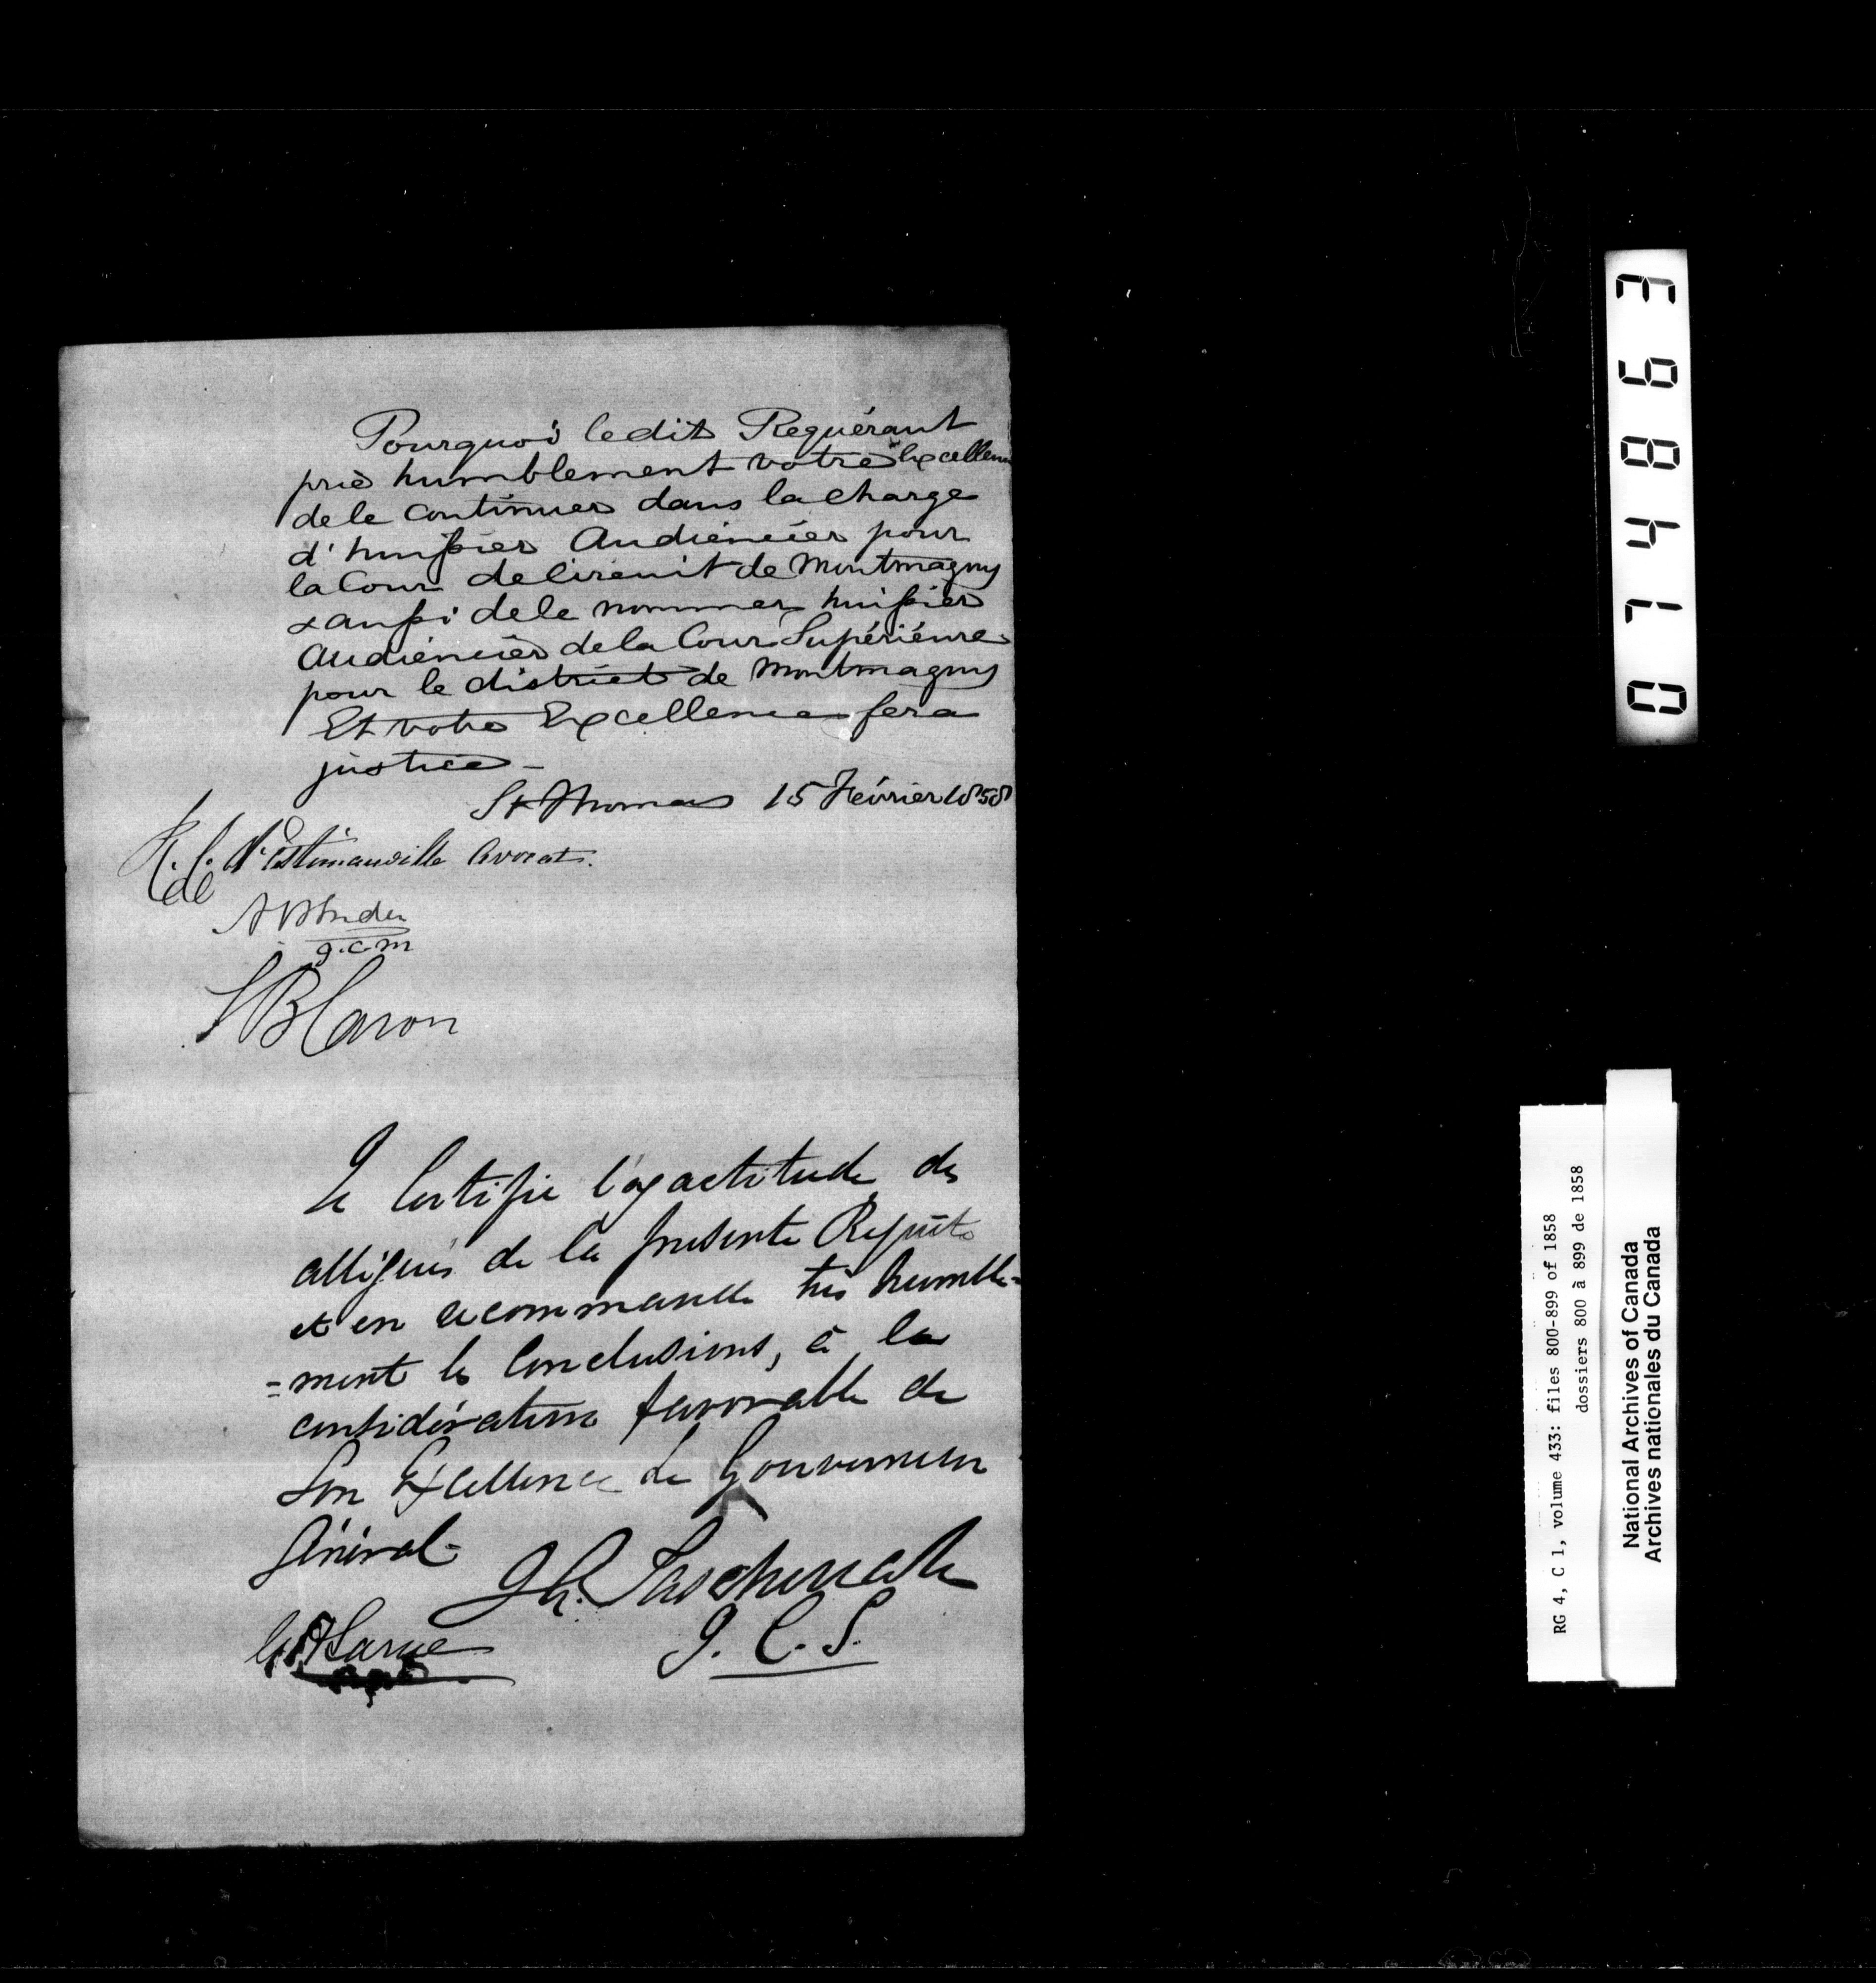 Pourquoi ledit Requérant
prie humblement votre Excellence
de le continuer dans la charge
d'huissier Audiencier pour
la Cour de Circuit de Montmagny
& aussi de le nommer huissier
Audiencier de la Cour Supérieure
pour le district de Montmagny
Et votre Excellence fera
justice -
St Thomas 15 Février 1858
d'Estimauville Avocat.
SB Caron
Je Certifie l'exactitude des
allégués de la présente Requête
et en recommande très humble=
=ment les Conclusions, à la
considération favorable de
Son Excellence le Gouverneur
Général-
J. C. S.
Larue
074863
RG 4, C 1, volume 433: files 800-899 of 1858
dossiers 800 à 899 de 1858
National Archives of Canada
Archives nationales du Canada